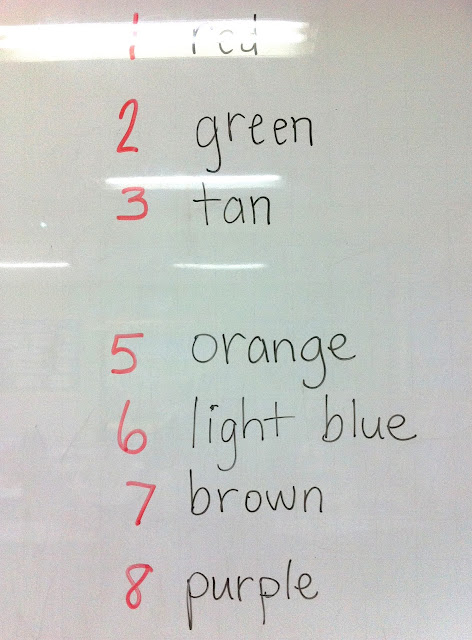 1 red
2 green
3 tan
5 orange
6 light blue
7 brown
8 purple